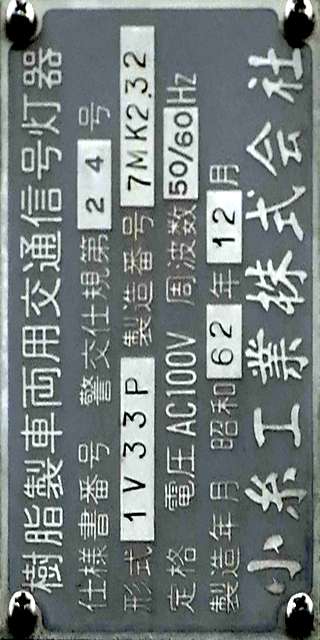 樹脂製車両用交通信号灯器
仕様書番号 警交仕規第 24 号
形式 1V33P 製造番号 7MK2,32
定格 電圧 AC100V 周波数 50/60 Hz
製造年月 昭和 62 年 12 月
小糸工業株式会社